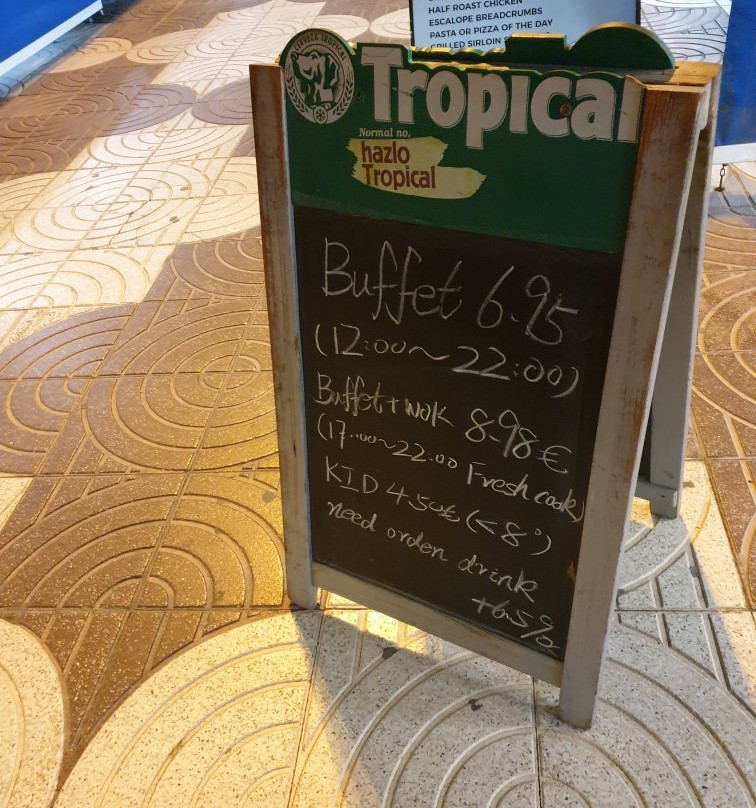 HALF ROAST CHICKEN
ESCALOPE BREADCRUMBS
PASTA OR PIZZA OF THE DAY
GRILLED SIRLOIN
CERVEZA TROPICAL
Tropical
Normal no,
hazlo
Tropical
Buffet 6.95
(12:00~22:00)
Buffet+wok 8.98€
(17.00~22.00 Fresh cook)
KID 4.50€ (<8°)
need orden drink
+6.5%